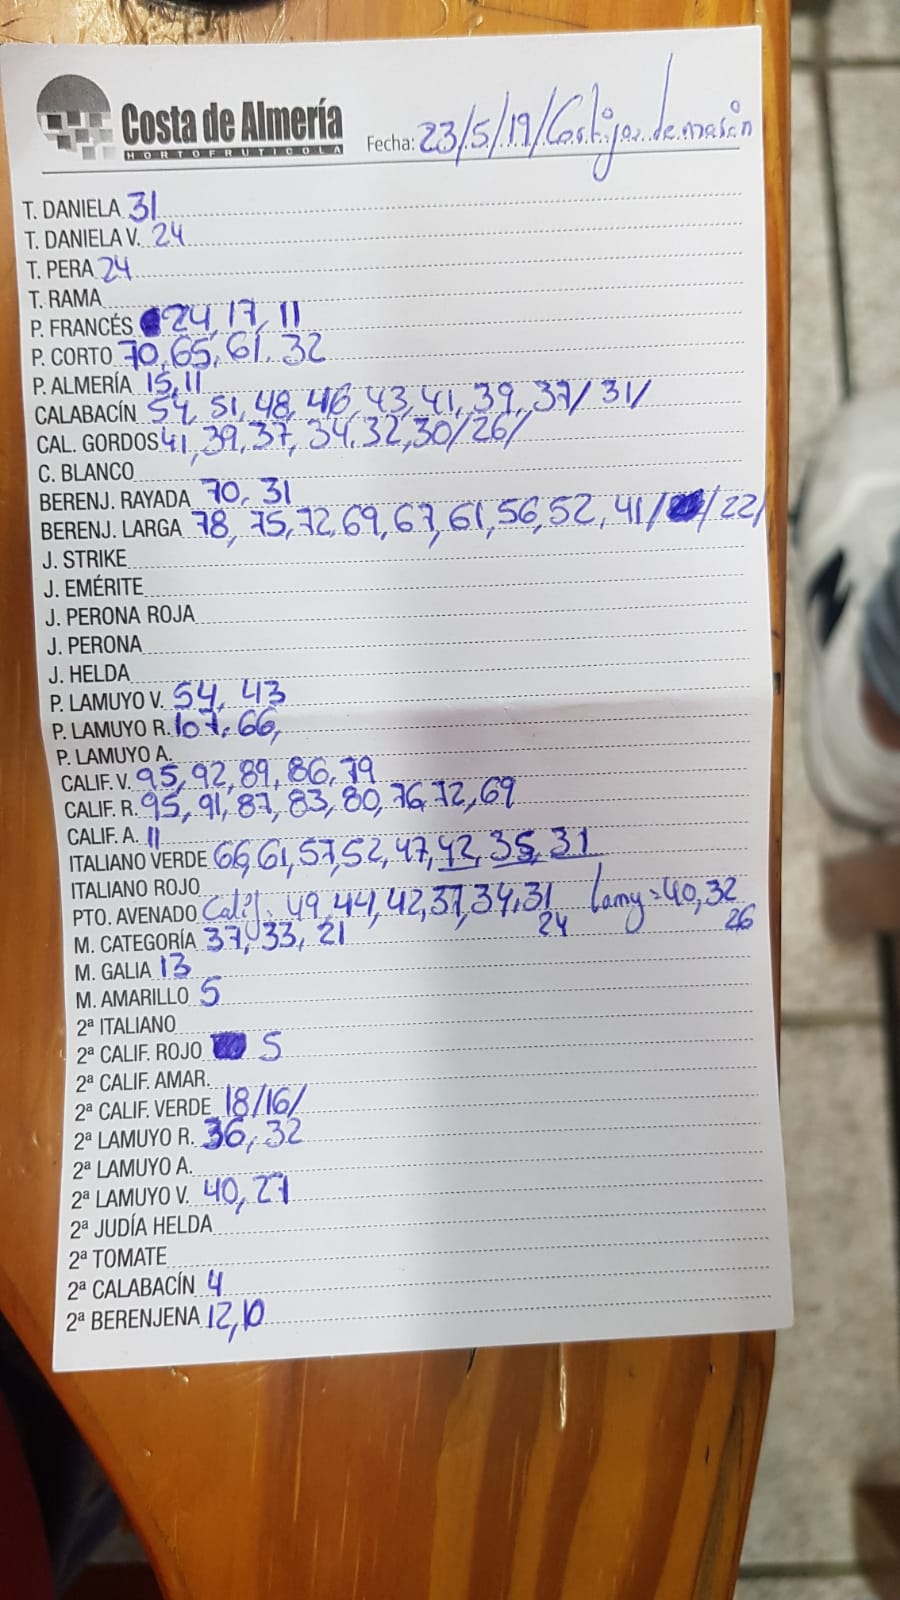 Costa de Almería
HORTOFRUTICOLA
Fecha: 23/5/19/Cortijos de marín
T. DANIELA 31
T. DANIELA V. 24
T. PERA 24
T. RAMA
P. FRANCÉS 24, 17, 11
P. CORTO 70, 65, 61, 32
P. ALMERÍA 15, 11
CALABACÍN 54, 51, 48, 46, 43, 41, 39, 37/ 31/
CAL. GORDOS 41, 39, 37, 34, 32, 30/26/
C. BLANCO
BERENJ. RAYADA 70, 31
BERENJ. LARGA 78, 75, 72, 69, 67, 61, 56, 52, 41/ / 22/
J. STRIKE
J. EMÉRITE
J. PERONA ROJA
J. PERONA
J. HELDA
P. LAMUYO V. 54, 43
P. LAMUYO R. 107, 66,
P. LAMUYO A.
CALIF. V. 95, 92, 89, 86, 79
CALIF. R. 95, 91, 87, 83, 80, 76, 72, 69
CALIF. A. 11
ITALIANO VERDE 66, 61, 57, 52, 47, 42, 35, 31
ITALIANO ROJO
PTO. AVENADO Calif. 49, 44, 42, 37, 34, 31 lamy = 40, 32
24 26
M. CATEGORÍA 37, 33, 21
M. GALIA 13
M. AMARILLO 5
2ª ITALIANO
2ª CALIF. ROJO 5
2ª CALIF. AMAR.
2ª CALIF. VERDE 18/16/
2ª LAMUYO R. 36, 32
2ª LAMUYO A.
2ª LAMUYO V. 40, 27
2ª JUDÍA HELDA
2ª TOMATE
2ª CALABACÍN 4
2ª BERENJENA 12, 10